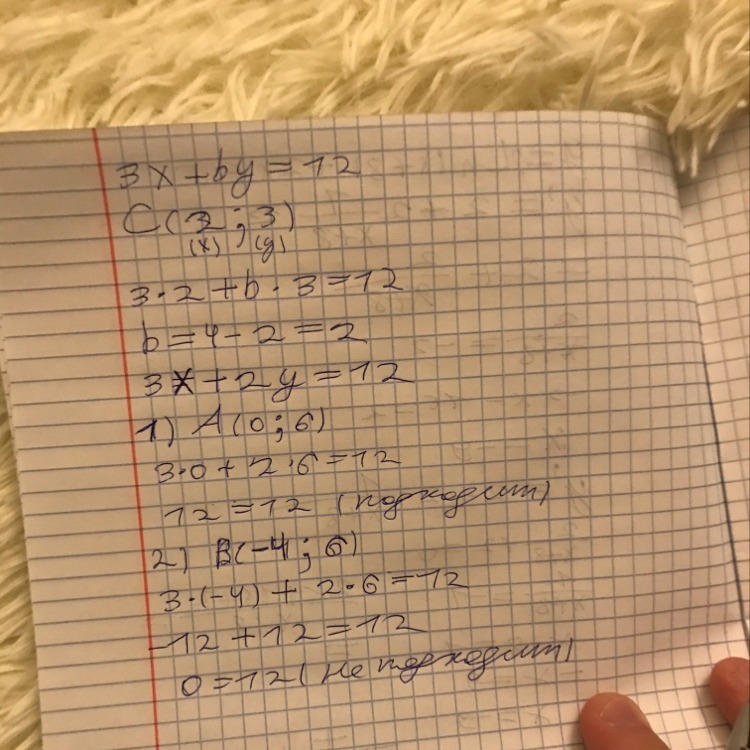 3x + by = 12
C(2; 3)
(x) (y)
3·2 + b·3 = 12
b = 4 - 2 = 2
3x + 2y = 12
1) A(0; 6)
3·0 + 2·6 = 12
12 = 12 (подходит)
2) B(-4; 6)
3·(-4) + 2·6 = 12
-12 + 12 = 12
0 = 12 (не подходит)